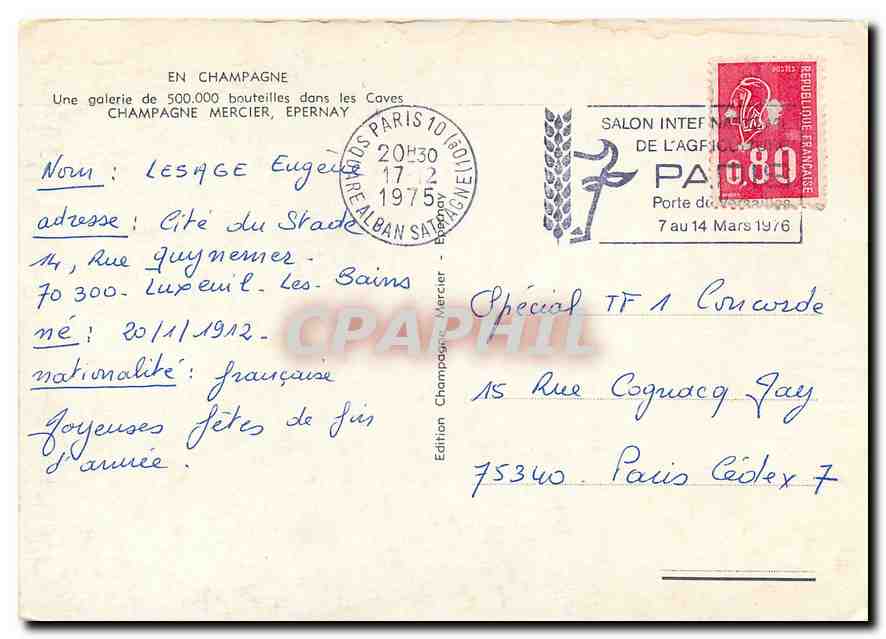 EN CHAMPAGNE
Une galerie de 500.000 bouteilles dans les Caves
CHAMPAGNE MERCIER, EPERNAY
Nom : LESAGE Eugène
adresse : Cité du Stade
14, Rue Guynemer
70 300 - Luxeuil - Les - Bains
né : 20/1/1912 -
nationalité : française
Joyeuses fêtes de fin
d'année.
Edition Champagne Mercier - Epernay
PARIS 10
20H30
17-12
1975
SALON INTERNATIONAL
DE L'AGRICULTURE
PARIS
Porte de Versailles
7 au 14 Mars 1976
POSTES
REPUBLIQUE FRANÇAISE
0,80
Spécial TF 1 Concorde
15 Rue Cognacq Jay
75340 - Paris Cédex 7
CPAPHIL